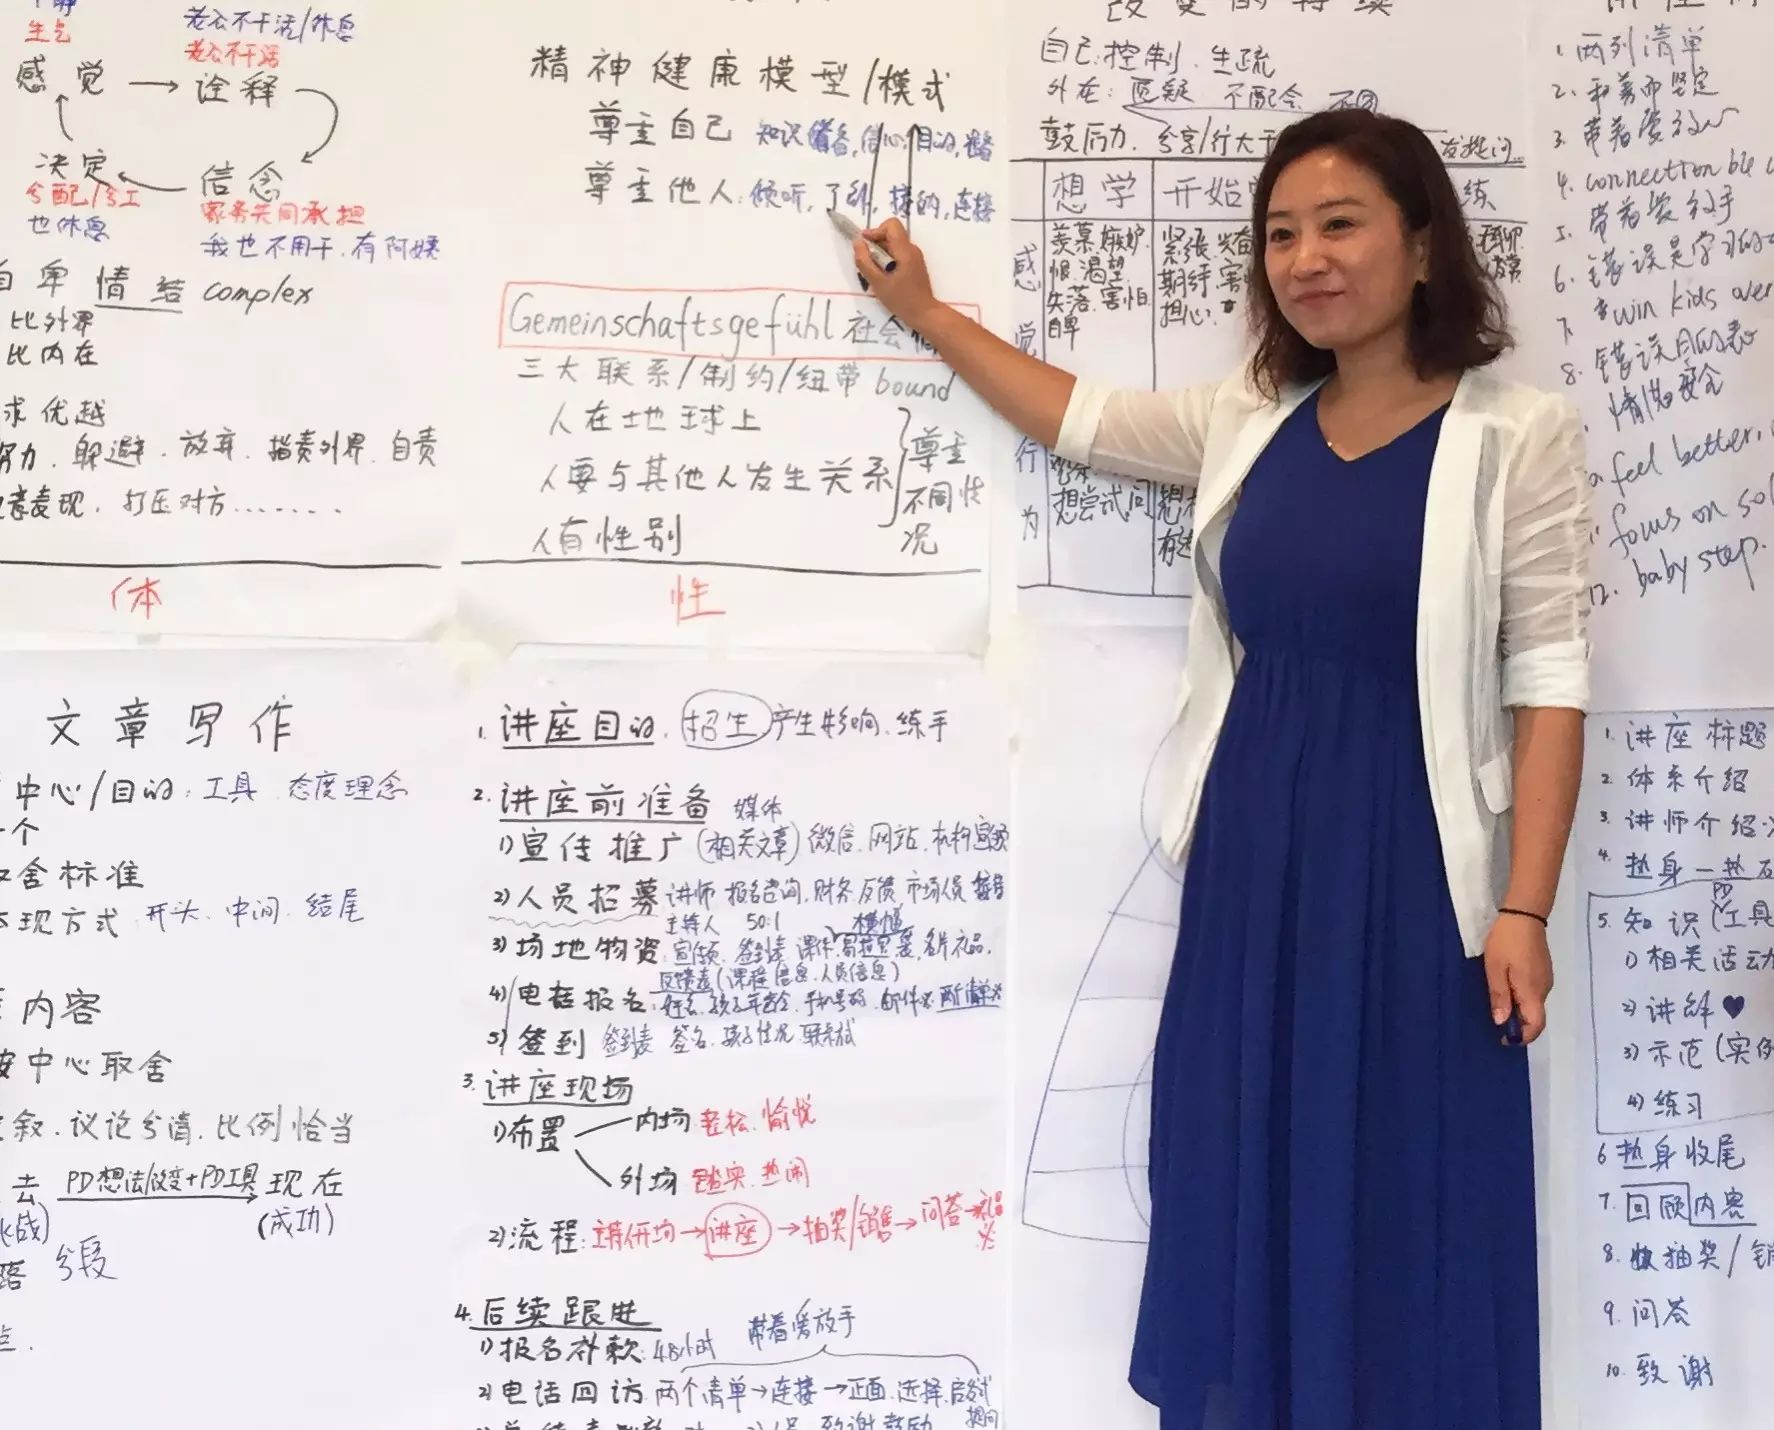 生气
老公不干活/休息
老公不干活
感觉 → 诠释
决定
信念
分配/分工
家务共同承担
也休息
我也不用干.有阿姨
自卑情结 complex
比外界
比内在
求优越
努力.躲避.放弃.指责外界.自责
表现.打压对方.......
体
精神健康模型/模式
尊重自己 知识储备,信心,目的,
尊重他人:倾听,了解,接纳,连接
Gemeinschaftsgefühl 社会
三大联系/制约/纽带 bound
人在地球上
人要与其他人发生关系
人有性别
尊重不同情况
性
改变的持续
自己:控制.生疏
外在:质疑 不配合
鼓励力.分享/行大于
想学
开始
练
感觉
羡慕.嫉妒.
恨.渴望.
失落.害怕.
自卑
紧张.兴奋
期待.害
担心.
行为
想尝试.问
1. 两列清单
2. 和善而坚定
3. 带着爱
4. connection be
5. 带着爱放手
6. 错误是学习的
7. win kids over
8. 错误目的表
情感安全
feel better
focus on sol
12. baby step.
文章写作
中心/目的:工具 态度理念
个
取舍标准
表现方式 开头.中间.结尾
内容
按中心取舍
叙.议论分清.比例恰当
去 PD想法/改变+PD工具 现在
挑战)
(成功)
分段
1. 讲座目的.招生 产生影响.练手
2. 讲座前准备 媒体
1) 宣传推广(相关文章)微信.网站.机构
2) 人员招募 讲师.报名咨询.财务.反馈.市场人员
主持人 50:1 横幅
3) 场地物资:签到表.课件.名片.礼品.
反馈表(课程信息.人员信息)
4) 电话报名:姓名.孩子年龄.手机号码.邮件
5) 签到 签到表 签名.孩子情况.联系方式
3. 讲座现场
1) 布置
内场 轻松.愉悦
外场 踏实.热闹
2) 流程:主持开场→讲座→抽奖/销售→问答→
4. 后续跟进
带着爱放手
1) 报名补款:48小时
2) 电话回访.两个清单→连接→正面.选择.启发式
提问
致谢鼓励
1. 讲座标题
2. 体系介绍
3. 讲师介绍
4. 热身一热
PD
5. 知识(工具
1) 相关活动
2) 讲解♥
3) 示范(实例
4) 练习
6 热身收尾
7. 回顾内容
8. 抽奖/销
9. 问答
10. 致谢